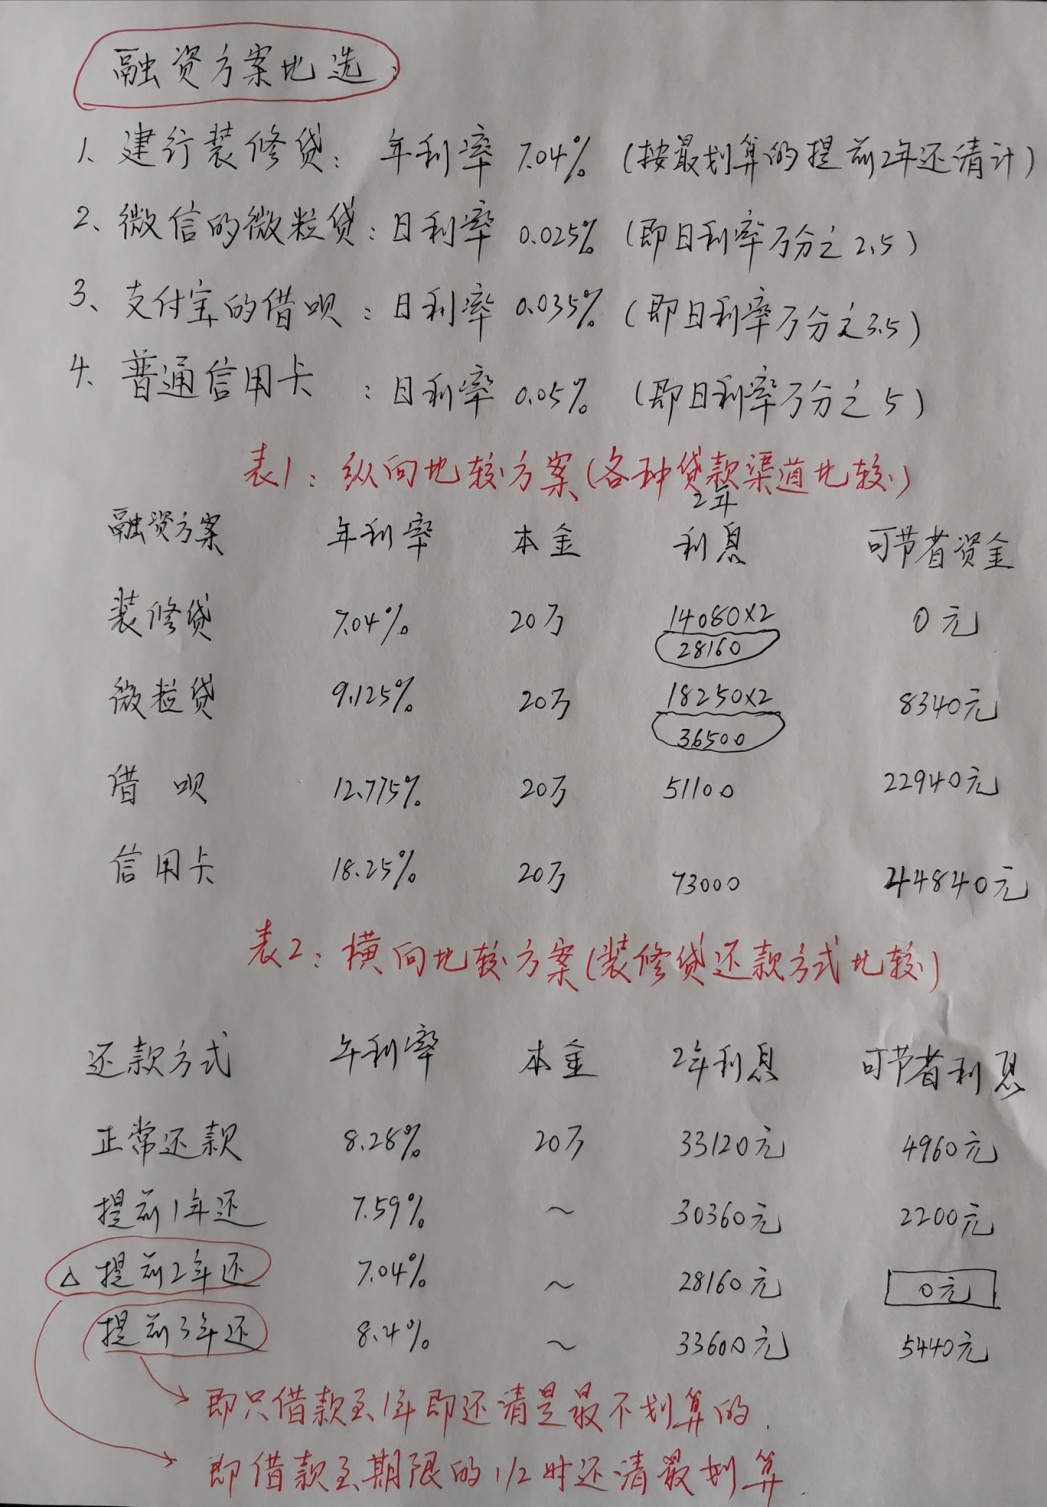 融资方案比选
1、建行装修贷：年利率 7.04%（按最划算的提前2年还清计）
2、微信的微粒贷：日利率 0.025%（即日利率万分之2.5）
3、支付宝的借呗：日利率 0.035%（即日利率万分之3.5）
4、普通信用卡：日利率 0.05%（即日利率万分之5）
表1：纵向比较方案（各种贷款渠道比较）
融资方案 年利率 本金 2年利息 可节省资金
装修贷 7.04% 20万 14080×2 0元
28160
微粒贷 9.125% 20万 18250×2 8340元
36500
借呗 12.775% 20万 51100 22940元
信用卡 18.25% 20万 73000 44840元
表2：横向比较方案（装修贷还款方式比较）
还款方式 年利率 本金 2年利息 可节省利息
正常还款 8.28% 20万 33120元 4960元
提前1年还 7.59% ～ 30360元 2200元
△提前2年还 7.04% ～ 28160元 0元
提前3年还 8.4% ～ 33600元 5440元
即只借款至1年即还清是最不划算的.
即借款至期限的1/2时还清最划算.